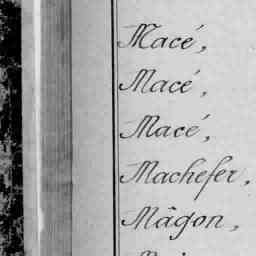 Macé,
Macé,
Macé,
Machefer,
Mâgon,